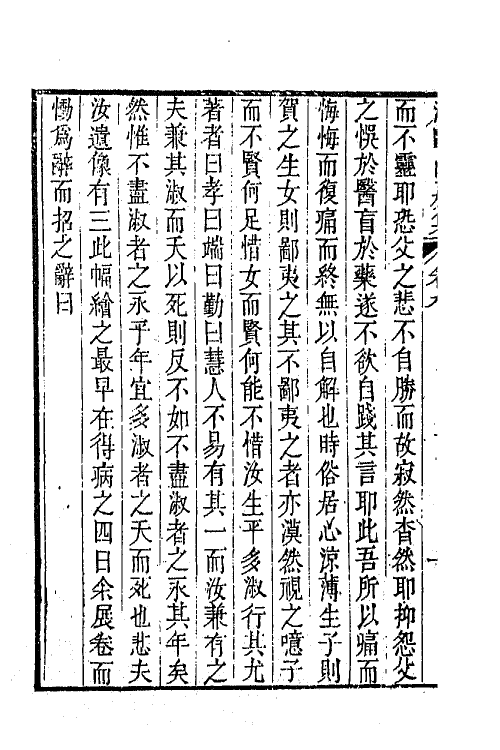 而不靈耶恐父之悲不自勝而故寂然杳然耶抑怨父
之悞於醫盲於藥遂不欲自踐其言耶此吾所以痛而
悔悔而復痛而終無以自解也時俗居心涼薄生子則
賀之生女則鄙夷之其不鄙夷之者亦漠然視之噫子
而不賢何足惜女而賢何能不惜汝生平多淑行其尤
著者曰孝曰端曰勤曰慧人不易有其一而汝兼有之
夫兼其淑而夭以死則反不如不盡淑者之永其年矣
然惟不盡淑者之永乎年宜多淑者之夭而死也悲夫
汝遺像有三此幅繪之最早在得病之四日余展卷而
慟爲辭而招之辭曰